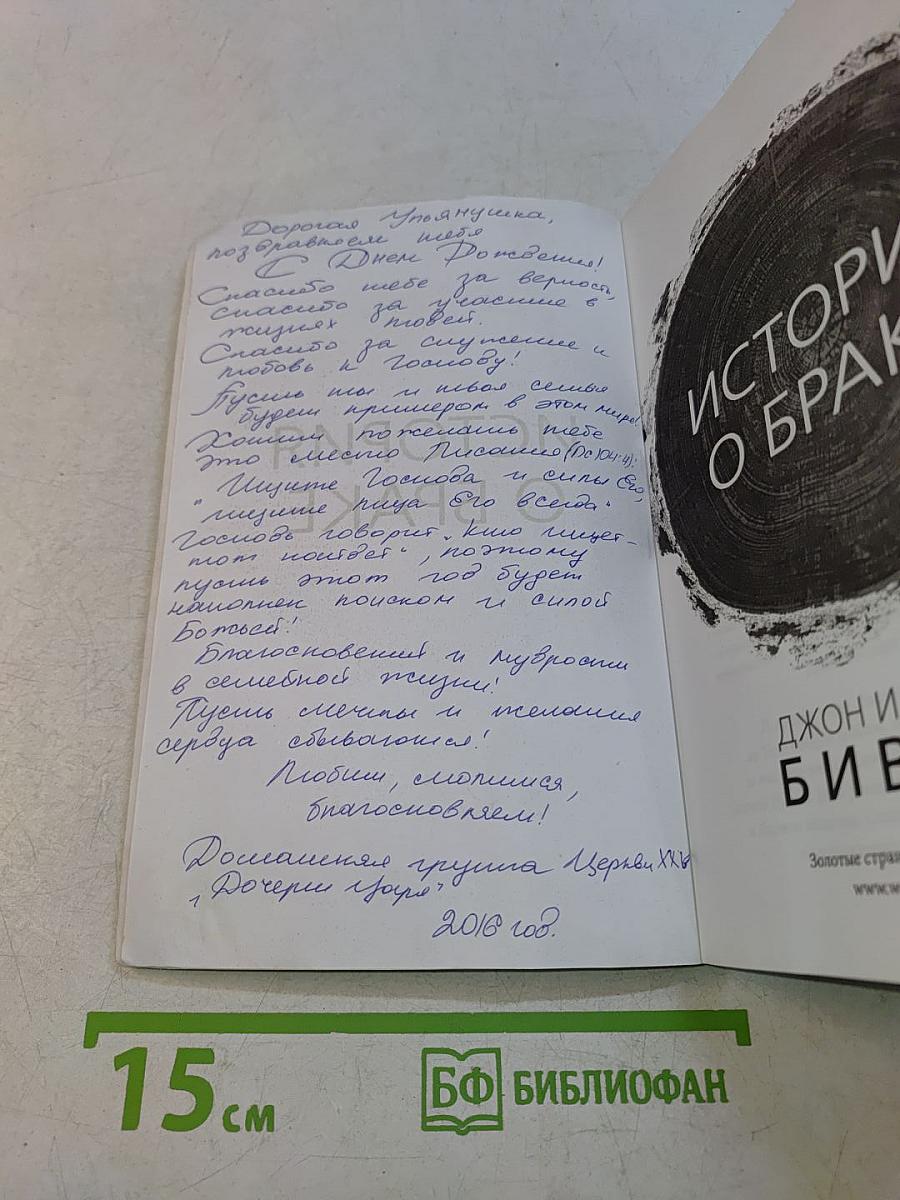 Дорогая Ульянушка,
поздравляем тебя
С Днем Рождения!
Спасибо тебе за верность,
спасибо за участие в
жизнях людей.
Спасибо за служение и
любовь к Господу!
Пусть ты и твоя семья
будет примером в этом мире!
Хотим пожелать тебе
это место Писания (Пс 104:4):
"Ищите Господа и силы Его,
ищите лица Его всегда"
Господь говорит "кто ищет -
тот найдет", поэтому
пусть этот год будет
наполнен поиском и силой
Божьей!
Благословений и мудрости
в семейной жизни!
Пусть мечты и желания
сердца сбываются!
Любим, молимся,
благословляем!
Домашняя группа Церкви
"Дочери Царя"
2016 год.
ИСТОРИ
О БРАК
ДЖОН И
БИВ
Золотые стра
www.w
15 см
БФ БИБЛИОФАН